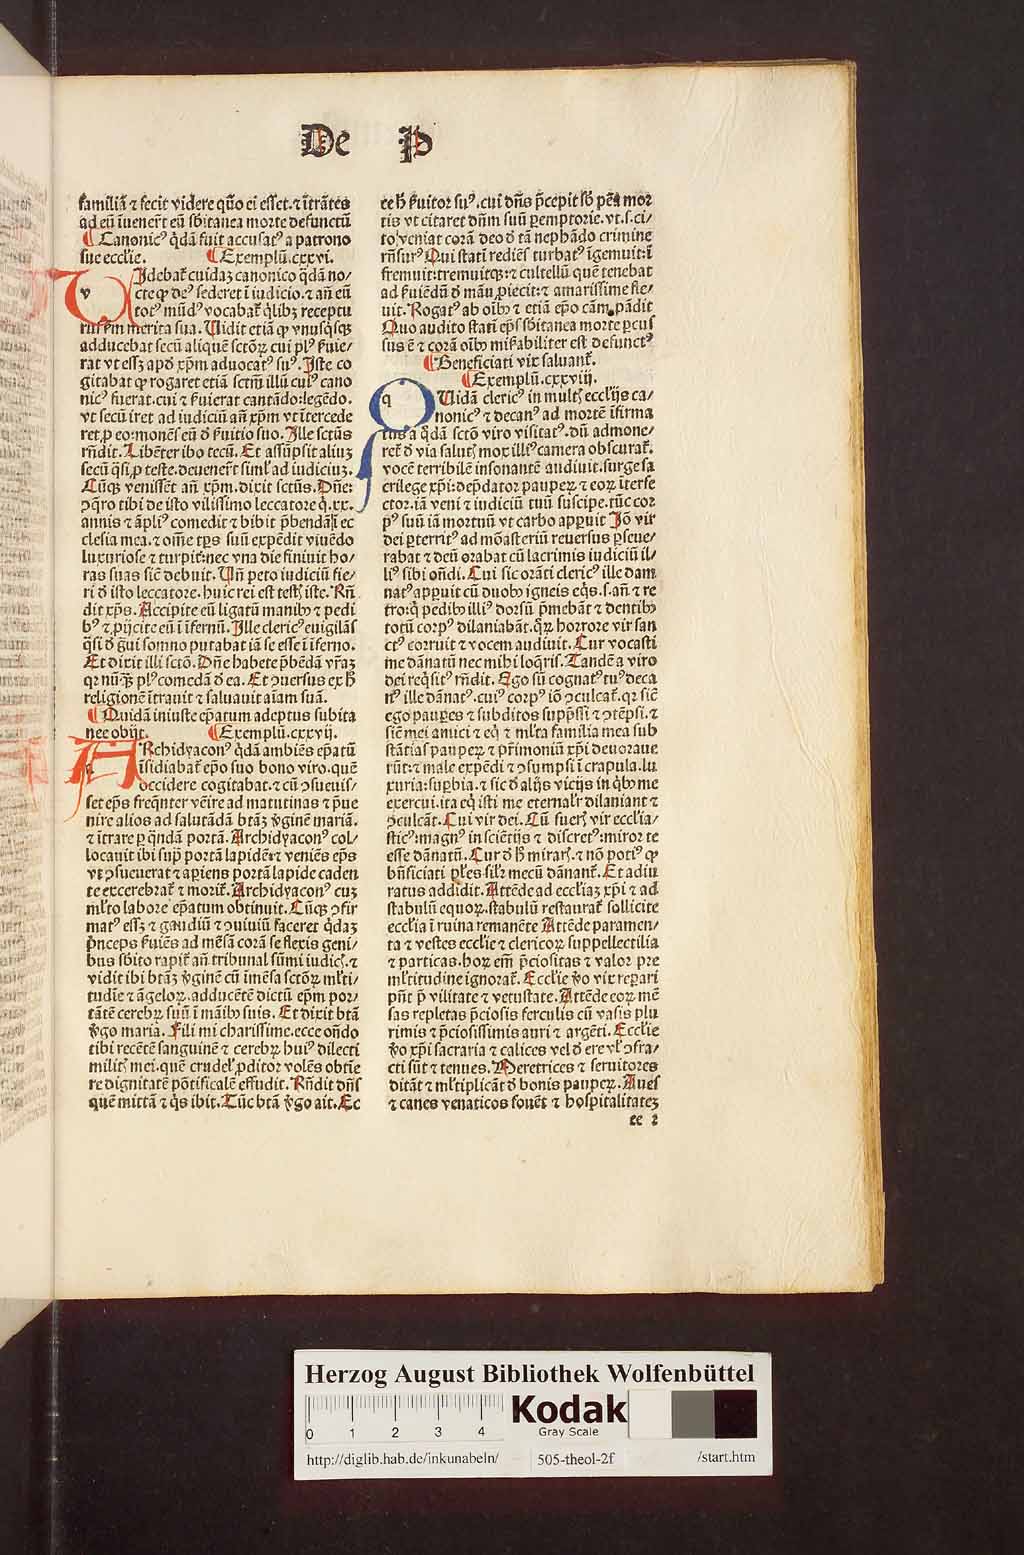 De P
familiã ⁊ fecit videre quõ ei esset.⁊ ĩtrãtes
ad eũ ĩuener̃t eũ sb̃itanea morte defunctũ
¶ Canonicꝰ q̃dã fuit accusatꝰ a patrono
sue eccl̃ie. ¶ Exemplũ.cxxvi.
v Idebat̃ cuidaꝫ canonico q̃dã no/
cte ꝙ deꝰ sederet ĩ iudicio.⁊ añ eũ
totꝰ mũdꝰ vocabat̃ q̃libꝫ receptu
rus km̃ merita sua. Uidit etiã ꝙ vnusq̃sqꝫ
adducebat secũ aliquẽ sctõꝝ cui plꝰ ẜuie/
rat vt essꝫ apđ xp̃m aduocatꝰ suꝰ. Iste co
gitabat ꝙ rogaret etiã sctm̃ illũ cuiꝰ cano
nicꝰ fuerat.cui ⁊ ẜuierat cantãdo:legẽdo.
vt secũ iret ad iudiciũ añ xp̃m vt ĩtercede
ret ꝓ eo:monẽs eũ đ ẜuitio suo. Ille sctũs
rñdit. Libẽter ibo tecũ. Et assũpsit aliuꝫ
secũ q̃si ꝓ teste.deuener̃t siml̃ ad iudiciuꝫ.
Cũqꝫ venissẽt añ xp̃m.dixit sctũs. Dñe:
ꝯq̃ro tibi de isto vilissimo leccatore q̃.xx.
annis ⁊ ãpliꝰ comedit ⁊ bibit p̃bendã ĩ ec
clesia mea.⁊ om̃e tp̃s suũ expẽdit viuẽdo
luxuriose ⁊ turpit̃:nec vna die finiuit ho/
ras suas sic̃ debuit. Uñ peto iudiciũ fie/
ri đ isto leccatore.huic rei est test̃ iste. Rñ
dit xp̃s. Accipite eũ ligatũ manibꝰ ⁊ pedi
bꝰ ⁊ ꝓijcite eũ ĩ ĩfernũ. Ille clericꝰ euigilãs
q̃si đ g̃ui somno putabat iã se esse ĩ ĩferno.
Et dixit illi sctõ. Dñe habete p̃bẽdã vr̃aꝫ
qꝛ nũq̃ꝫ plꝰ comedã đ ea. Et ꝯuersus ex h̃
religionẽ ĩtrauit ⁊ saluauit aĩam suã.
¶ Quidã iniuste ep̃atum adeptus subita
nee obijt. ¶ Exemplũ.cxxvij.
a Rchidyaconꝰ q̃dã ambiẽs ep̃atũ
ĩsidiabat̃ ep̃o suo bono viro.quẽ
occidere cogitabat.⁊ cũ ꝯsueuis/
set ep̃s freq̃nter vẽire ad matutinas ⁊ p̃ue
nire alios ad salutãdã btãꝫ v̾ginẽ mariã.
⁊ ĩtrare ꝑ q̃ndã portã. Archidyaconꝰ col/
locauit ibi sup̃ portã lapidẽ:⁊ veniẽs ep̃s
vt ꝯsueuerat ⁊ aꝑiens portã lapide caden
te excerebrat̃ ⁊ morit̃. Archidyaconꝰ cuꝫ
ml̃to labore ep̃atum obtinuit. Cũqꝫ ꝯfir
matꝰ essꝫ ⁊ gaudiũ ⁊ ꝯuiuiũ faceret q̃daꝫ
p̃nceps ẜuiẽs ad mẽsã corã se flexis geni/
bus sb̃ito rapit̃ añ tribunal sũmi iudic̃.⁊
vidit ibi btãꝫ v̾ginẽ cũ ĩmẽsa sctõꝝ ml̃ti/
tudĩe ⁊ ãgeloꝝ.adducẽtẽ dictũ ep̃m por/
tãtẽ cerebꝝ suũ ĩ mãibꝰ suis. Et dixit btã
v̾go maria. Fili mi charissime.ecce oñdo
tibi recẽtẽ sanguinẽ ⁊ cerebꝝ huiꝰ dilecti
milit̃ mei.quẽ crudel̃ ꝓditor volẽs obtĩe
re dignitatẽ põtificalẽ effudit. Rñdit dñs
quẽ mittã ⁊ q̃s ibit. Tũc btã v̾go ait. Ec
ce h̃ ẜuitor suꝰ.cui dñs p̃cepit sb̃ pẽa mor
tis vt citaret dñm suũ ꝑemptorie.vt.s.ci/
to veniat corã deo đ tã nephãdo crimine
rñsurꝰ Qui statĩ rediẽs turbatꝰ ĩgemuit:ĩ
fremuit:tremuitqꝫ:⁊ cultellũ quẽ tenebat
ad ẜuiẽdũ đ mãu ꝓiecit:⁊ amarissime fle/
uit. Rogatꝰ ab oĩbꝰ ⁊ etiã ep̃o cãm pãdit
Quo audito statĩ ep̃s sb̃itanea morte ꝑcus
sus ẽ ⁊ corã oĩbꝰ mir̃abiliter est defunctꝰ
¶ Beneficiati vix saluant̃.
¶ Exemplũ.cxxviij.
q Uidã clericꝰ in mult̃ eccl̃ijs ca/
nonicꝰ ⁊ decanꝰ ad mortẽ ĩfirma
tus a q̃dã sctõ viro visitatꝰ.dũ admone/
ret̃ đ via salut̃ mox illiꝰ camera obscurat̃.
vocẽ terribilẽ insonantẽ audiuit.surge sa
crilege xp̃i:dep̃dator pauꝑeꝝ ⁊ eoꝝ ĩterfe
ctor.iã veni ⁊ iudiciũ tuũ suscipe.tũc cor
pꝰ suũ iã mortuũ vt carbo apꝑuit Iõ vir
dei ꝑterritꝰ ad mõasteriũ reuersus ꝑseue/
rabat ⁊ deũ orabat cũ lacrimis iudiciũ il/
liꝰ sibi oñdi. Cui sic orãti clericꝰ ille dam
natꝰ apꝑuit cũ duobꝰ igneis eq̃s.s.añ ⁊ re
tro:q̃ pedibꝰ illiꝰ dorsũ p̃mebãt ⁊ dentibꝰ
totũ corpꝰ dilaniabãt.q̃ꝝ horrore vir san
ctꝰ corruit ⁊ vocem audiuit. Cur vocasti
me dãnatũ nec mihi loq̃ris. Tandẽ a viro
dei req̃sitꝰ rñdit. Ego sũ cognatꝰ tuꝰ deca
nꝰ ille dãnatꝰ.cuiꝰ corpꝰ iõ ꝯculcat̃.qꝛ sic̃
ego pauꝑes ⁊ subditos supp̃ssi ⁊ ꝯtẽpsi.⁊
sic̃ mei amici ⁊ eq̃ ⁊ ml̃ta familia mea sub
stãtias pauꝑeꝝ ⁊ pr̃imoniũ xp̃i deuoraue
rũt:⁊ male expẽdi ⁊ ꝯsumpsi ĩ crapula.lu
xuria:suꝑbia.⁊ sic đ alijs vicijs in q̃bꝰ me
exercui.ita eq̃ isti me eternal̃r dilaniant ⁊
ꝯculcãt. Cui vir dei. Cũ fuer̃ vir eccl̃ia/
sticꝰ:magnꝰ in sciẽtijs ⁊ discretꝰ:miror te
esse dãnatũ. Cur đ h̃ mirar̃.⁊ nõ potiꝰ ꝙ
bñficiati pl̃es sil̃r mecũ dãnant̃. Et adiu
ratus addidit. Attẽde ad eccl̃iaꝫ xp̃i ⁊ ad
stabulũ equoꝝ.stabulũ restaurat̃ sollicite
eccl̃ia ĩ ruina remanẽte Attẽde paramen/
ta ⁊ vestes eccl̃ie ⁊ clericoꝝ suppellectilia
⁊ particas.hoꝝ em̃ p̃ciositas ⁊ valor pre
ml̃titudine ignorat̃. Eccl̃ie v̾o vix reꝑari
pñt p̃ vilitate ⁊ vetustate. Attẽde eoꝝ mẽ
sas repletas p̃ciosis ferculis cũ vasis plu
rimis ⁊ p̃ciosissimis auri ⁊ argẽti. Eccl̃ie
v̾o xp̃i sacraria ⁊ calices vel đ ere vl̃ ꝯfra/
cti sũt ⁊ tenues. Meretrices ⁊ seruitores
ditãt ⁊ ml̃tiplicãt đ bonis pauꝑeꝝ. Aues
⁊ canes venaticos fouẽt ⁊ hospitalitateꝫ
ee 2
Herzog August Bibliothek Wolfenbüttel
0 1 2 3 4
Kodak
Gray Scale
http://diglib.hab.de/inkunabeln/ 505-theol-2f /start.htm